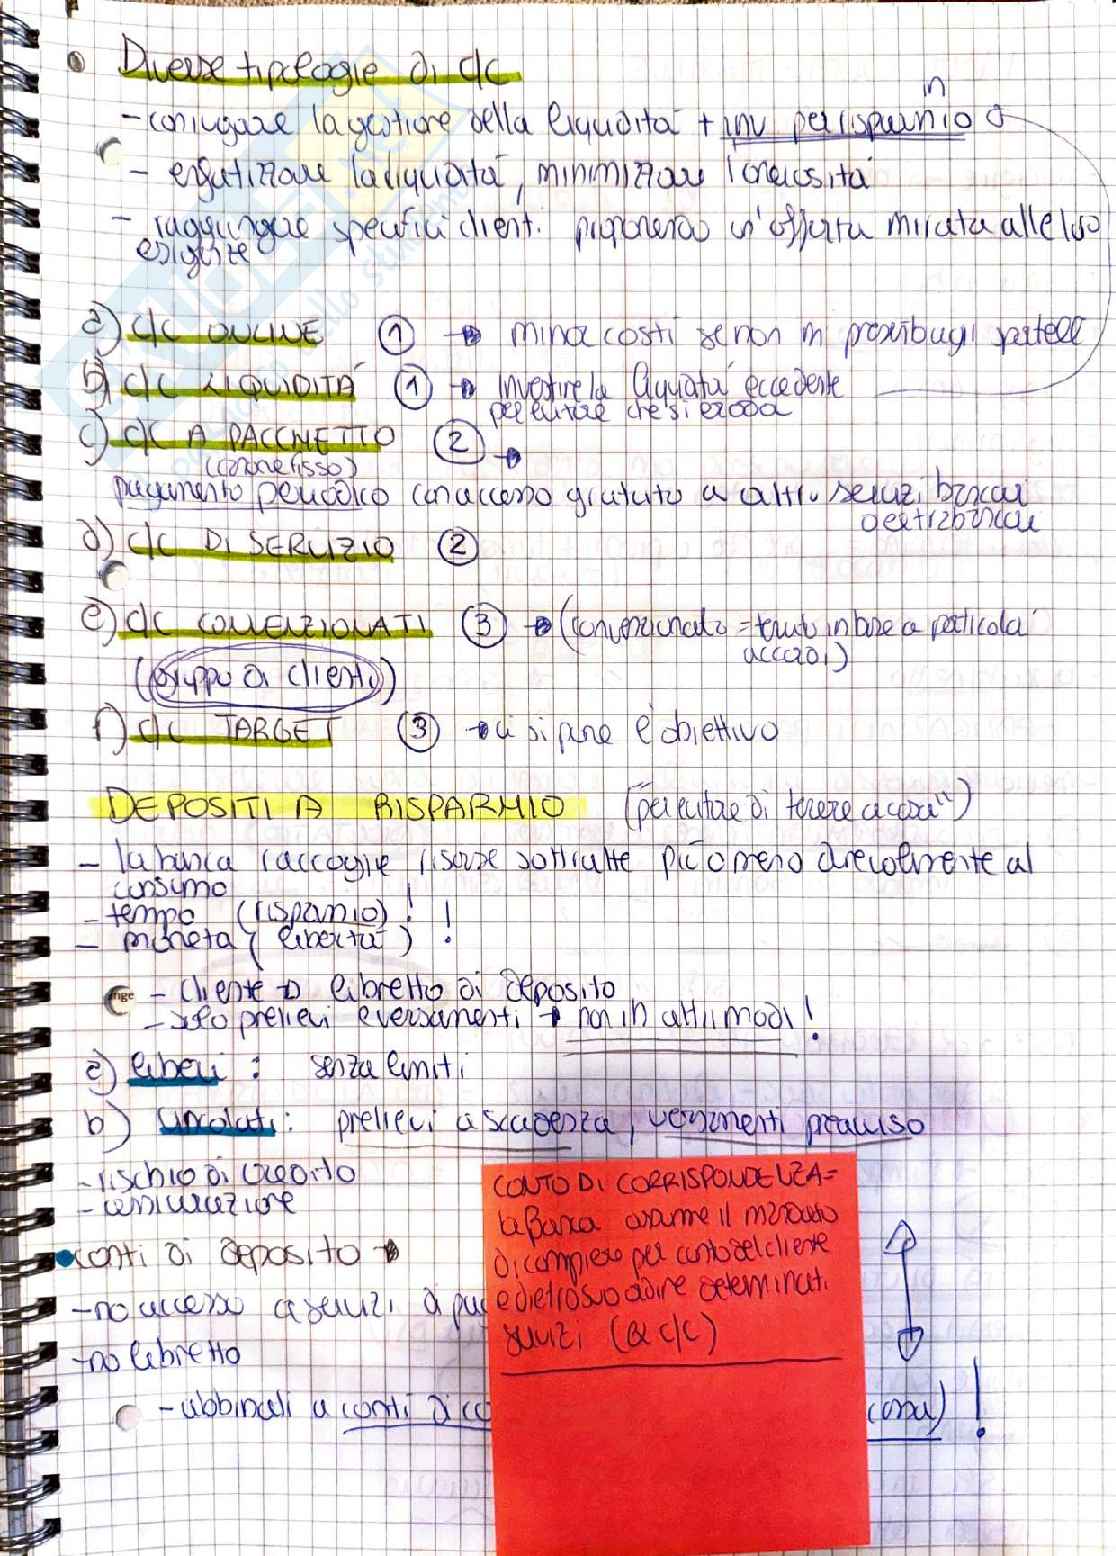 Diverse tipologie di c/c
in
- coniugare la gestione della liquidità + inv per risparmio
- enfatizzare la liquidità, minimizzare l'onerosità
- raggiungere specifici clienti proponendo un'offerta mirata alle loro
esigenze
a) c/c ONLINE ① → minor costi se non in possibugi sportelli
b) c/c LIQUIDITÀ ① → Investire la liquidità eccedente
per evitare che si eroda
c) c/c A PACCHETTO ② →
(canone fisso)
pagamento periodico con accesso gratuito a altri servizi bancari
d extrabancari
d) c/c DI SERVIZIO ②
e) c/c CONVENZIONATI ③ → (convenzionato = tenuto in base a particolari
accordi)
(gruppo di clienti)
f) c/c TARGET ③ → ci si pone l'obiettivo
DEPOSITI A RISPARMIO (per evitare di tenere a casa")
- la banca raccoglie risorse sottratte più o meno durevolmente al
consumo
- tempo (risparmio) !
- moneta (libertà) !
- cliente → libretto di deposito
- solo prelievi e versamenti → non in altri modi!
a) liberi : senza limiti
b) vincolati : prelievi a scadenza, versamenti precluso
- rischio di credito
- assicurazione
• conti di deposito →
- no accesso a servizi di pag
- no libretto
- abbinati a conti di co
corr) !
CONTO DI CORRISPONDENZA =
la Banca assume il mandato
di compiere per conto del cliente
e dietro suo ordine determinati
servizi (è c/c)